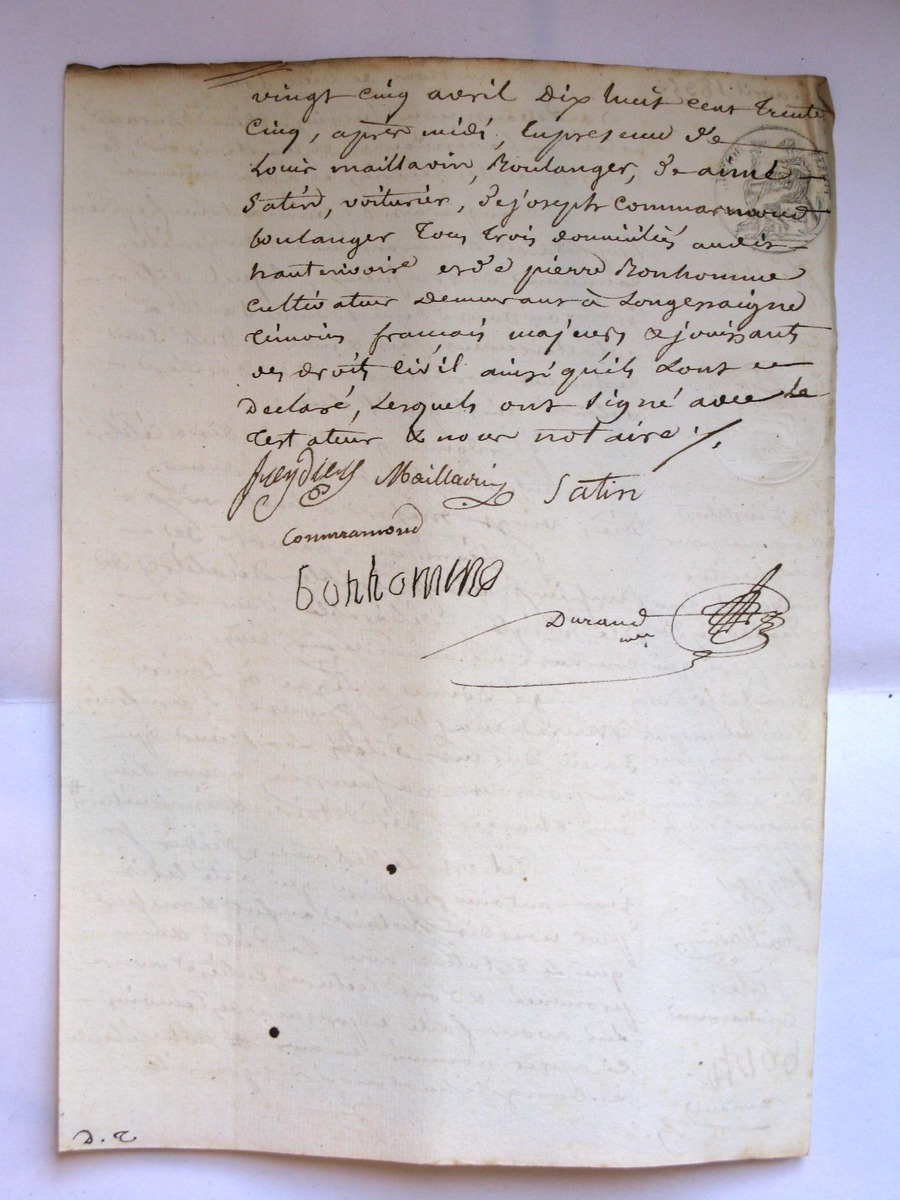 vingt cinq avril Dix huit cent trente
cinq, après midi, En presence de
Louis maillavin, Boulanger, De aimé
Satin, voiturier, De joseph Commarmond
boulanger Tous trois domiciliés audit
hauterivoire et de pierre Bonhomme
Cultivateur Demeurant à Longessaigne
témoins français majeurs & jouissant
des droits Civil ainsi qu'ils L'ont
Déclaré, Lesquels ont signé avec Le
Testateur & nous notaire ./.
Maillavin Satin
Commarmond
bonhomme
Durand
D. T